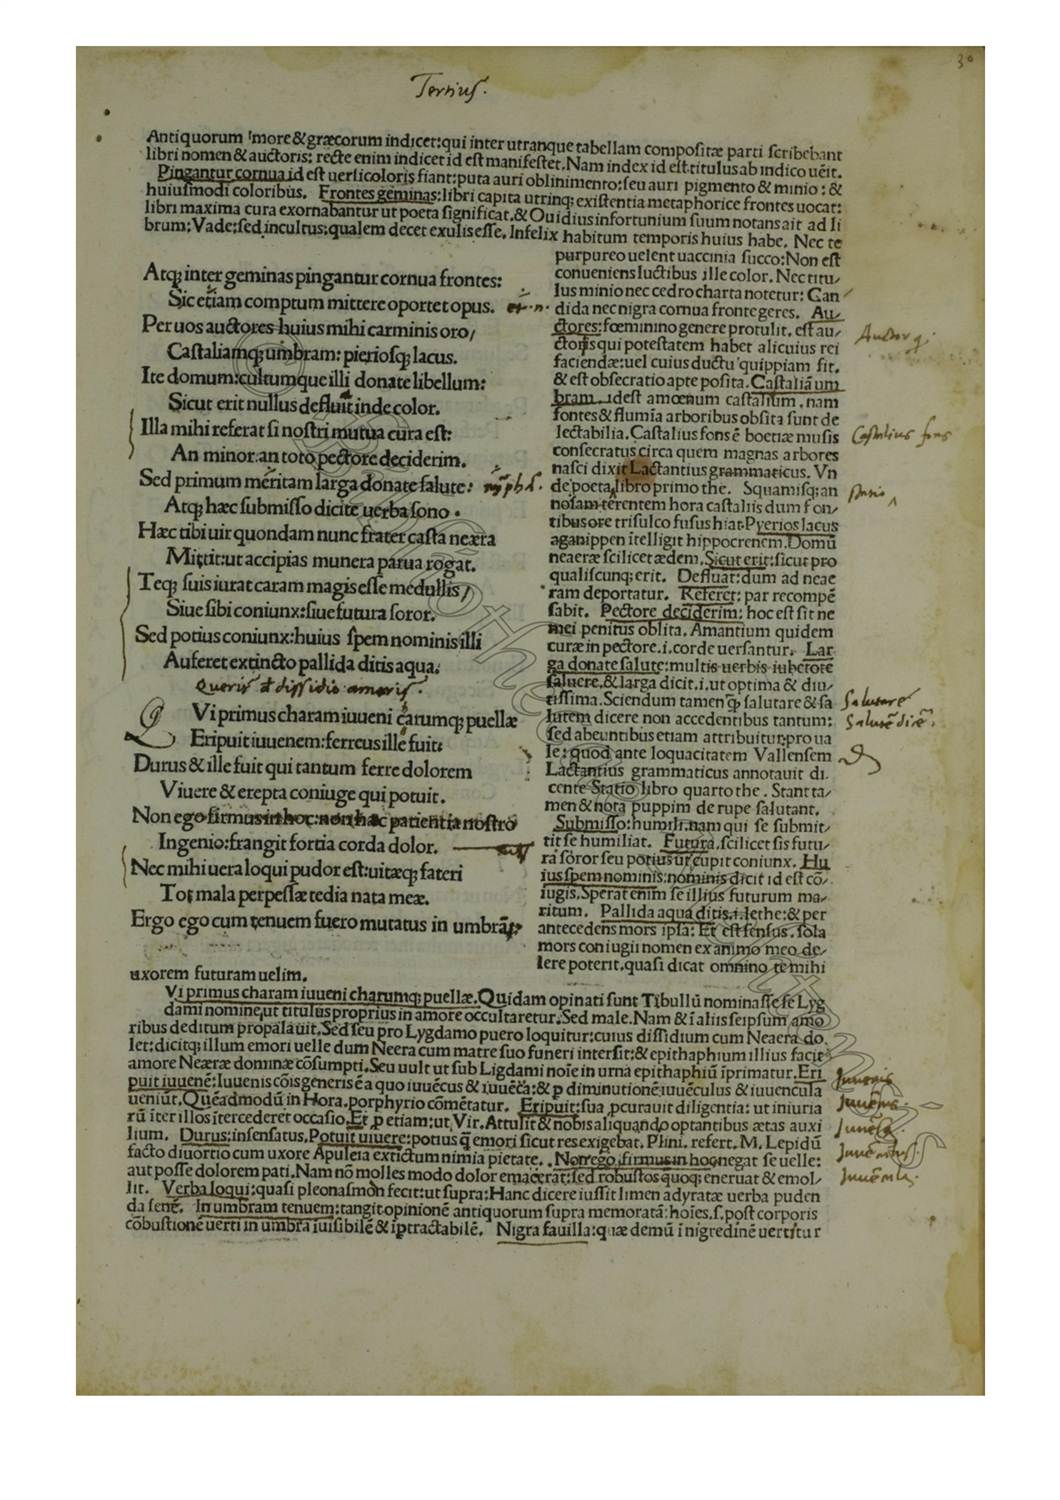 Tertius.
30
Antiquorum more & græcorum indicet: qui inter utranque tabellam compositæ parti scribebant
libri nomen & auctoris: recte enim indicet id est manifestet. Nam index id est titulus ab indico uēit.
Pingantur cornua id est uersicoloris fiant: puta auri oblinimento: seu auri pigmento & minio: &
huiusmodi coloribus. Frontes geminas: libri capita utrinq; existentia metaphorice frontes uocat:
libri maxima cura exornabantur ut poeta significat. & Ouidius infortunium suum notans ait ad li
brum: Vade: sed incultus: qualem decet exulis esse. Infelix habitum temporis huius habe. Nec te
Atq; inter geminas pingantur cornua frontes:
Sic etiam comptum mittere oportet opus.
Per uos auctores huius mihi carminis oro/
Castaliamq; umbram: pieriosq; lacus.
Ite domum: cultumque illi donate libellum:
Sicut erit nullus defluit inde color.
Illa mihi referat si nostri mutua cura est:
An minor: an toto pectore deciderim.
Sed primum meritam larga donate salute:
Atq; hæc submisso dicite uerba sono.
Hæc tibi uir quondam nunc frater casta neæra
Mittit: ut accipias munera parua rogat.
Teq; suis iurat caram magis esse medullis/
Siue sibi coniunx: siue futura soror.
Sed potius coniunx: huius spem nominis illi
Auferet extincto pallida ditis aqua.
Queris de dissidio amoris.
Q Vi primus charam iuueni carumq; puellæ
Eripuit iuuenem: ferreus ille fuit:
Durus & ille fuit qui tantum ferre dolorem
Viuere & erepta coniuge qui potuit.
Non ego firmus in hoc: non hæc patientia nostro
Ingenio: frangit fortia corda dolor.
Nec mihi uera loqui pudor est: uitæq; fateri
Tot mala perpessæ tedia nata meæ.
Ergo ego cum tenuem fuero mutatus in umbrā:
purpureo uelent uaccinia succo: Non est
conueniens luctibus ille color. Nec titu/
lus minio nec cedro charta notetur: Can/
dida nec nigra cornua fronte geres. Au/
ctores: fœminino genere protulit. est au/
ctor is qui potestatem habet alicuius rei
faciendæ: uel cuius ductu quippiam fit.
& est obsecratio apte posita. Castaliā um
bram. idest amœnum castalium. nam
fontes & flumīa arboribus obsita sunt de
lectabilia. Castalius fons ē boetiæ musis
consecratus circa quem magnas arbores
nasci dixit Lactantius grammaticus. Vn
de poeta libro primo the. Squamisq; an
nosam terentem hora castaliis dum fon/
tibus ore trisulco fusus hiat. Pyerios lacus
aganippen ītelligit hippocrenem. Domū
neaeræ scilicet ædem. Sicut erit: sicut pro
qualiscunq; erit. Defluat: dum ad neae
ram deportatur. Referet: par recompē
sabit. Pectore deciderim: hoc est sit ne
mei penitus oblita. Amantium quidem
curæ in pectore. i. corde uersantur. Lar
ga donate salute: multis uerbis iubetote
saluere. & larga dicit. i. ut optima & diu/
tissima. Sciendum tamen q salutare & sa
lutem dicere non accedentibus tantum:
sed abeuntibus etiam attribuitur: pro ua
le: quod ante loquacitatem Vallensem
Lactantius grammaticus annotauit di.
cente Statio libro quarto the. Stant ta/
men & nota puppim de rupe salutant.
Submisso: humili. nam qui se submit/
tit se humiliat. Futura. scilicet sis futu/
ra soror seu potius ut cupit coniunx. Hu
ius spem nominis: nominis dicit id est cō/
iugis. Sperat enim se illius futurum ma/
ritum. Pallida aqua ditis. i. lethe: & per
antecedens mors ipsa: Et est sensus. sola
mors coniugii nomen ex animo meo de/
lere poterit. quasi dicat omnino te mihi
Auctor q.
Castalius fons
Statio
Salutare
Salutē dicē.
uxorem futuram uelim.
Vi primus charam iuueni charumq; puellæ. Quidam opinati sunt Tibullū nominasse se Lyg
dami nomine, ut titulus proprius in amore occultaretur. Sed male. Nam & ī aliis seipsum amo
ribus deditum propalauit. Sed seu pro Lygdamo puero loquitur: cuius dissidium cum Neaera do
let: dicitq; illum emori uelle dum Neera cum matre suo funeri intersit: & epithaphium illius facit
amore Neæræ dominæ cōsumpti. Seu uult ut sub Ligdami noīe in urna epithaphiū īprimatur. Eri
puit iuuenē: Iuuenis cōis generis ē a quo iuuēcus & iuuēca: & p diminutionē iuuēculus & iuuencula
ueniūt. Quēadmodū in Hora. porphyrio cōmētatur. Eripuit: sua pcurauit diligentia: ut iniuria
rū īter illos ītercederet occasio. Et p etiam: ut Vir. Attulit & nobis aliquando optantibus ætas auxi
lium. Durus: insensatus. Potuit uiuere: potius q emori sicut res exigebat. Plini. refert. M. Lepidū
facto diuortio cum uxore Apuleia extictum nimia pietate. Non ego firmus in hoc negat se uelle:
aut posse dolorem pati. Nam nō molles modo dolor emacerat: sed robustos quoq; eneruat & emol/
lit. Verba loqui: quasi pleonasmon fecit: ut supra: Hanc dicere iussit limen adyratæ uerba puden
da senē. In umbram tenuem: tangit opinionē antiquorum supra memoratā: hoīes. s. post corporis
cōbustionē uerti in umbrā īuisibilē & ītractabilē. Nigra fauilla: quæ demū ī nigredinē uertitur
Juuenis
Juuēcus.
Juuēca.
Juuēculus.